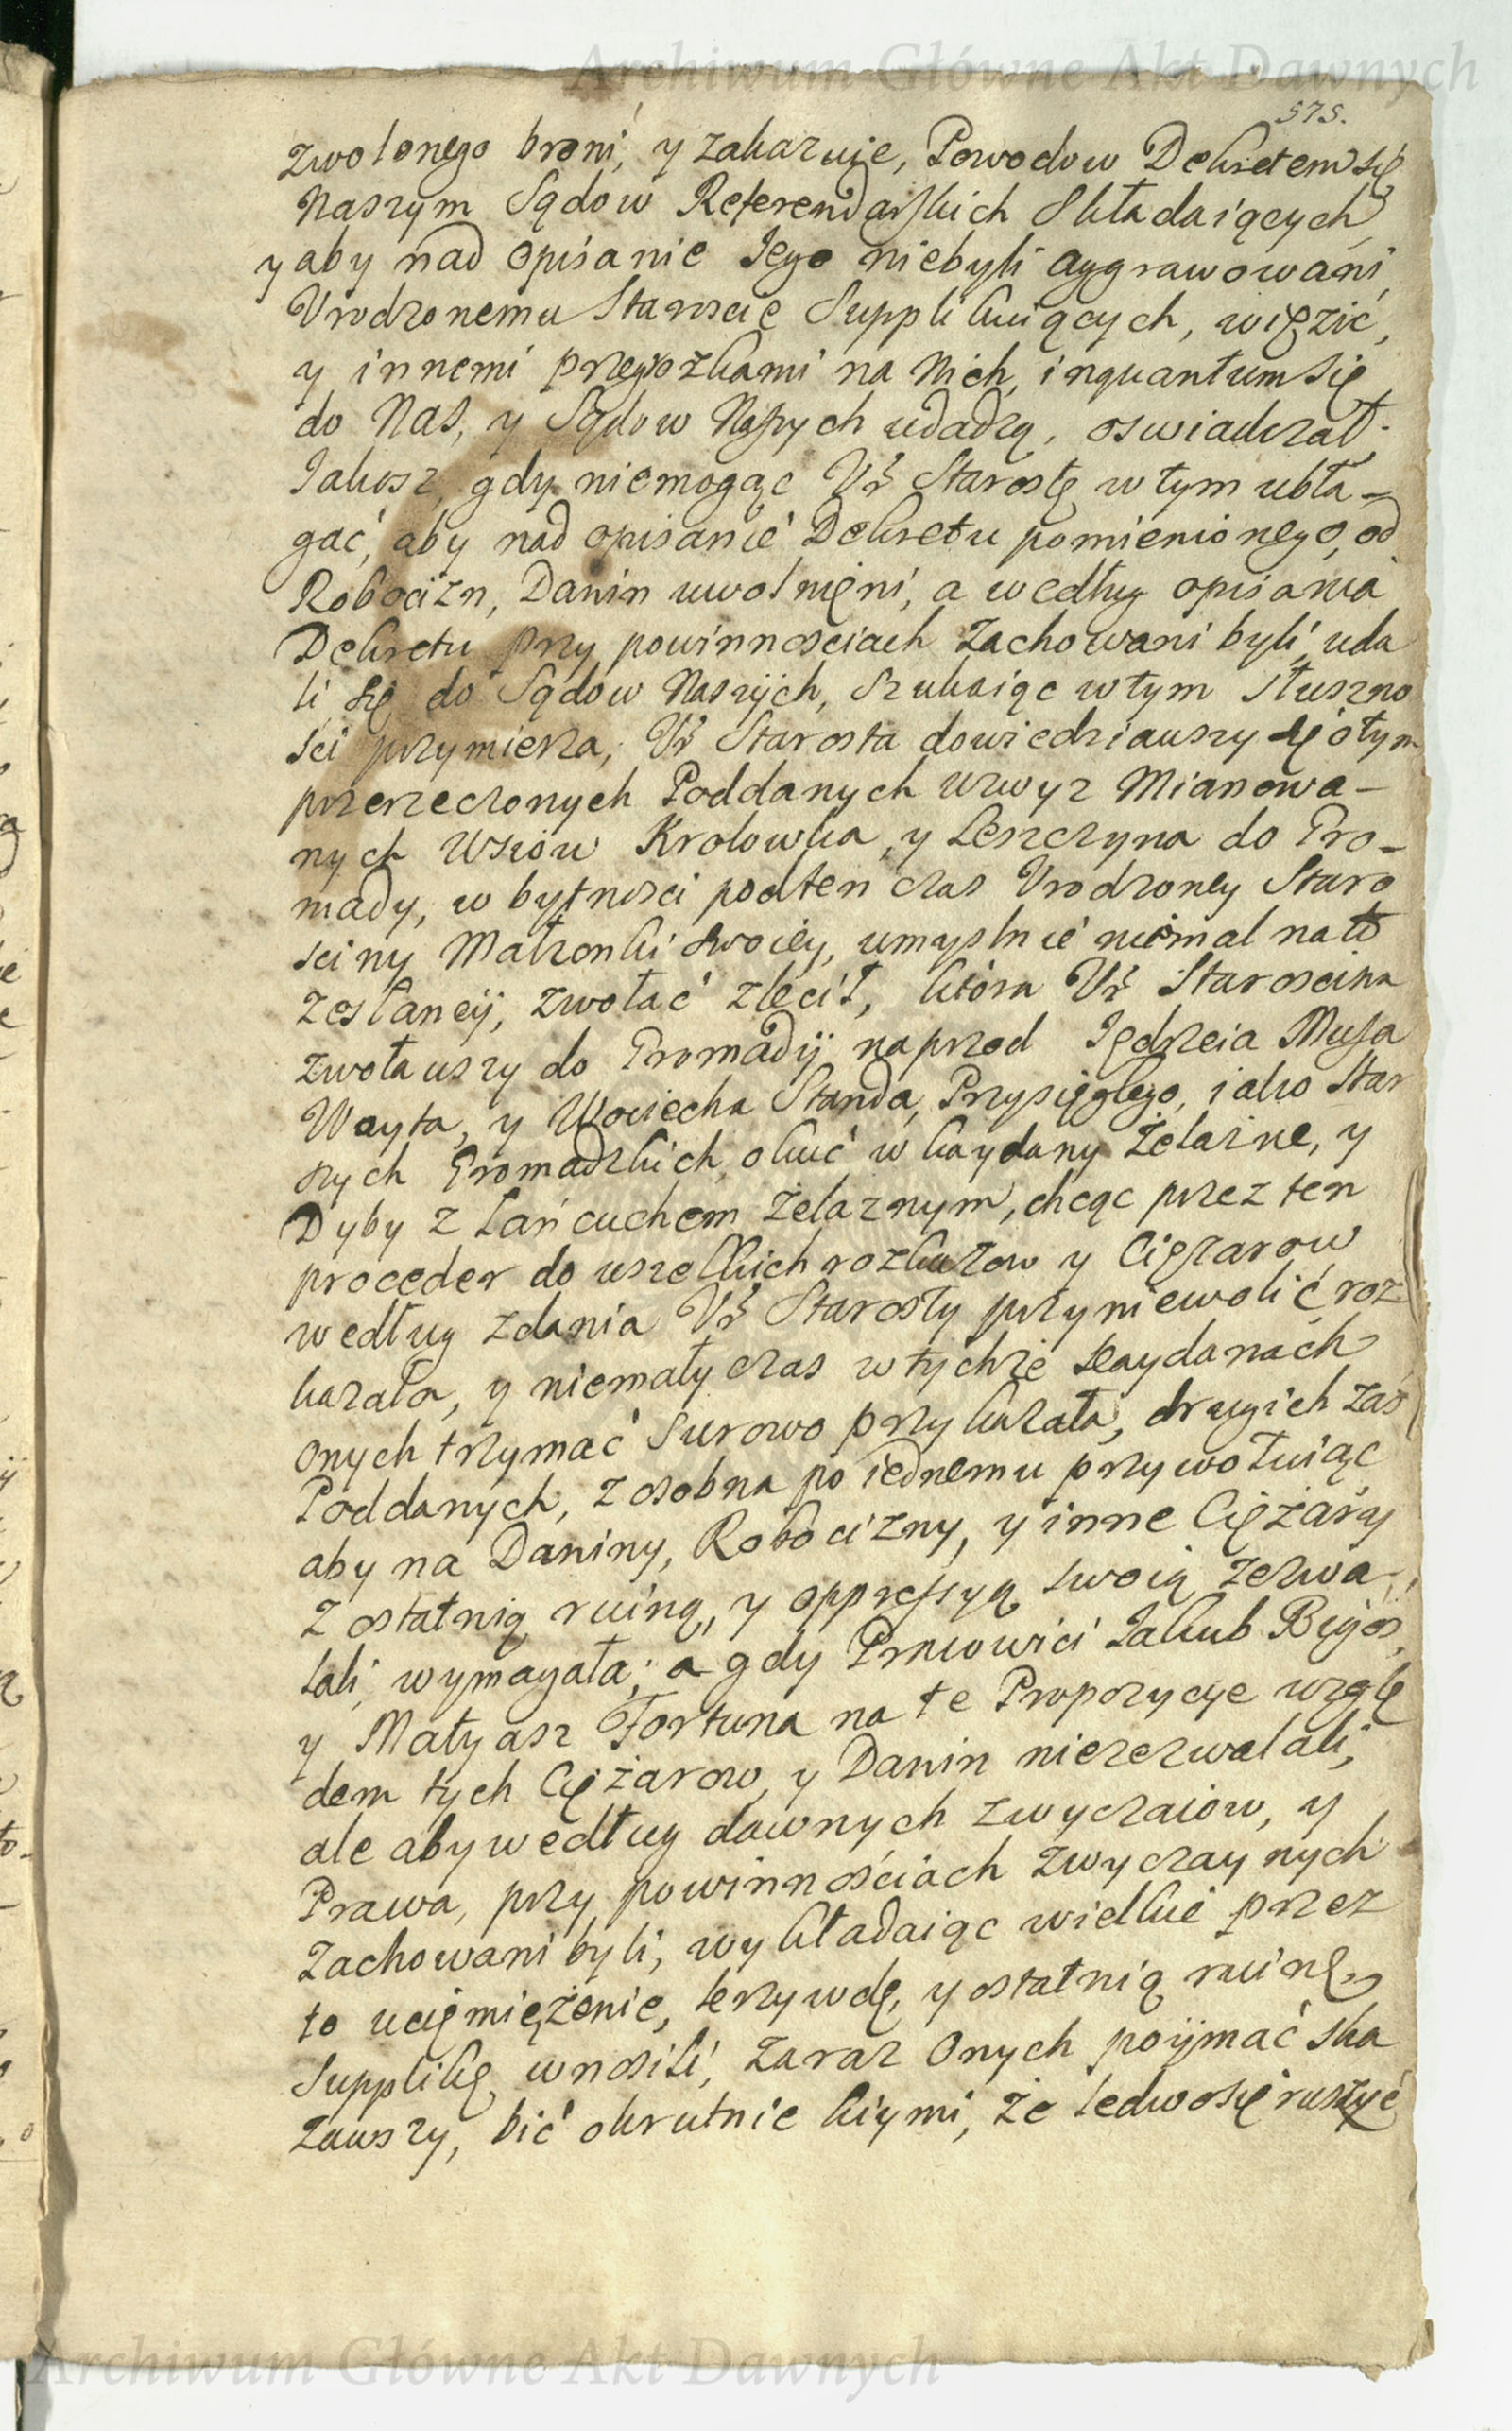 Archiwum Główne Akt Dawnych
575.
zwolonego broni, y zakazuie, Powodow Dekretem się
Naszym Sądow Referendarskich Składaiących,
y aby nad opisanie Jego niebyli aggrawowani,
Urodzonemu Staroscie Supplikuiących, więzić,
y innemi pregrozkami na Nich, inquantum się
do Nas, y Sądow Naszych udadzą, oswiadczał.
Jakosz, gdy niemogąc Ur Starostę w tym ubła-
gać, aby nad opisanie Dekretu pomienionego, od
Robocizn, Danin uwolnięni, a według opisania
Dekretu przy powinnosciach zachowani byli, uda
li się do Sądow Naszÿch, Szukaiąc wtym słuszno
sci przymierza, Ur Starosta dowiedziauszy się otym
przerzeczonych Poddanych wzwyz Mianowa-
nych Wsiow Krolowka, y Leszczyna do Gro-
mady, w bytnosci podten czas Urodzoney Staro
sciny Małzonki swoiey, umyslnie niemal nato
zesłaneÿ, zwołać zlecił, ktora Ur Staroscina
zwołauszy do Gromadÿ naprzod Jędrzeia Musa
Woyta, y Woyciecha Standa, Przysięgłego, iako Star
szych Gromadzkich, okuć w kaydany żelazne, y
Dyby z Łańcuchem żelaznym, chcąc przez ten
proceder do wszelkich rozkazow y Ciężarow
według zdania Ur Starosty przyniewolić roz
kazała, y niemały czas wtychże kaydanach
onych trzymać surowo przykazała, drugich zaś
Poddanych, zosobna po iednemu przywołuiąc
aby na Daniny, Robocizny, y inne Ciężary
z ostatnią ruiną, y oppressyą swoią zezwa-
lali, wymagała; a gdy Pracowici Jakub Bigos,
y Matyasz Fortuna na te Propozycye wzglę
dem tych Ciężarow, y Danin niezezwalali,
ale aby według dawnych zwyczaiow, y
Prawa, przy powinnościach zwyczaynych
zachowani byli, wykładaiąc wielkie przez
to uciemiężenie, krzywdę, y ostatnią ruinę,
Supplikę wnosili, zaraz Onych poÿmać ska
zauszy, bić okrutnie kiymi, że ledwosię ruszyć
Archiwum Główne Akt Dawnych